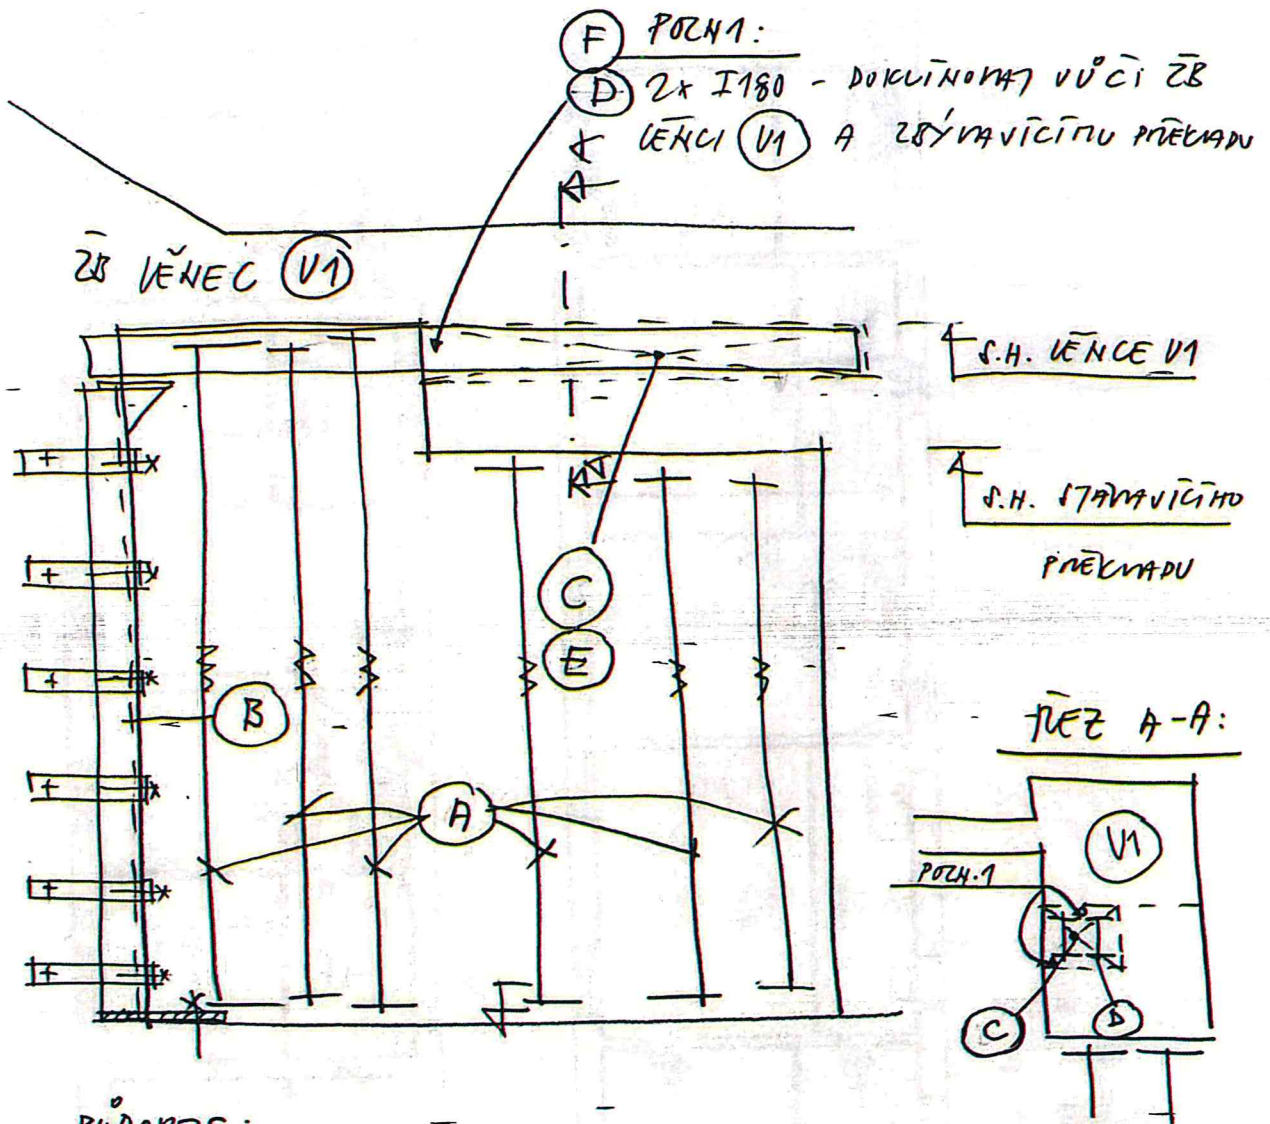 F POZN1:
D 2x I180 - DOKLÍNOVAT VŮČI ŽB
VĚNCI V1 A ZBÝVAJÍCÍMU PŘEKLADU
ŽB VĚNEC V1
S.H. VĚNCE V1
S.H. STÁVAJÍCÍHO
PŘEKLADU
C
E
B
A
ŘEZ A-A:
V1
POZN.1
C
D